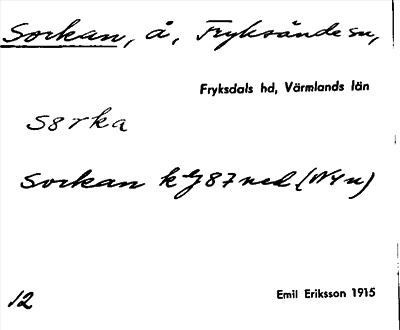 Sorkan, å, Fryksände sn,
Fryksdals hd, Värmlands län
særka
Sorkan k 87 ned (NV n)
12
Emil Eriksson 1915